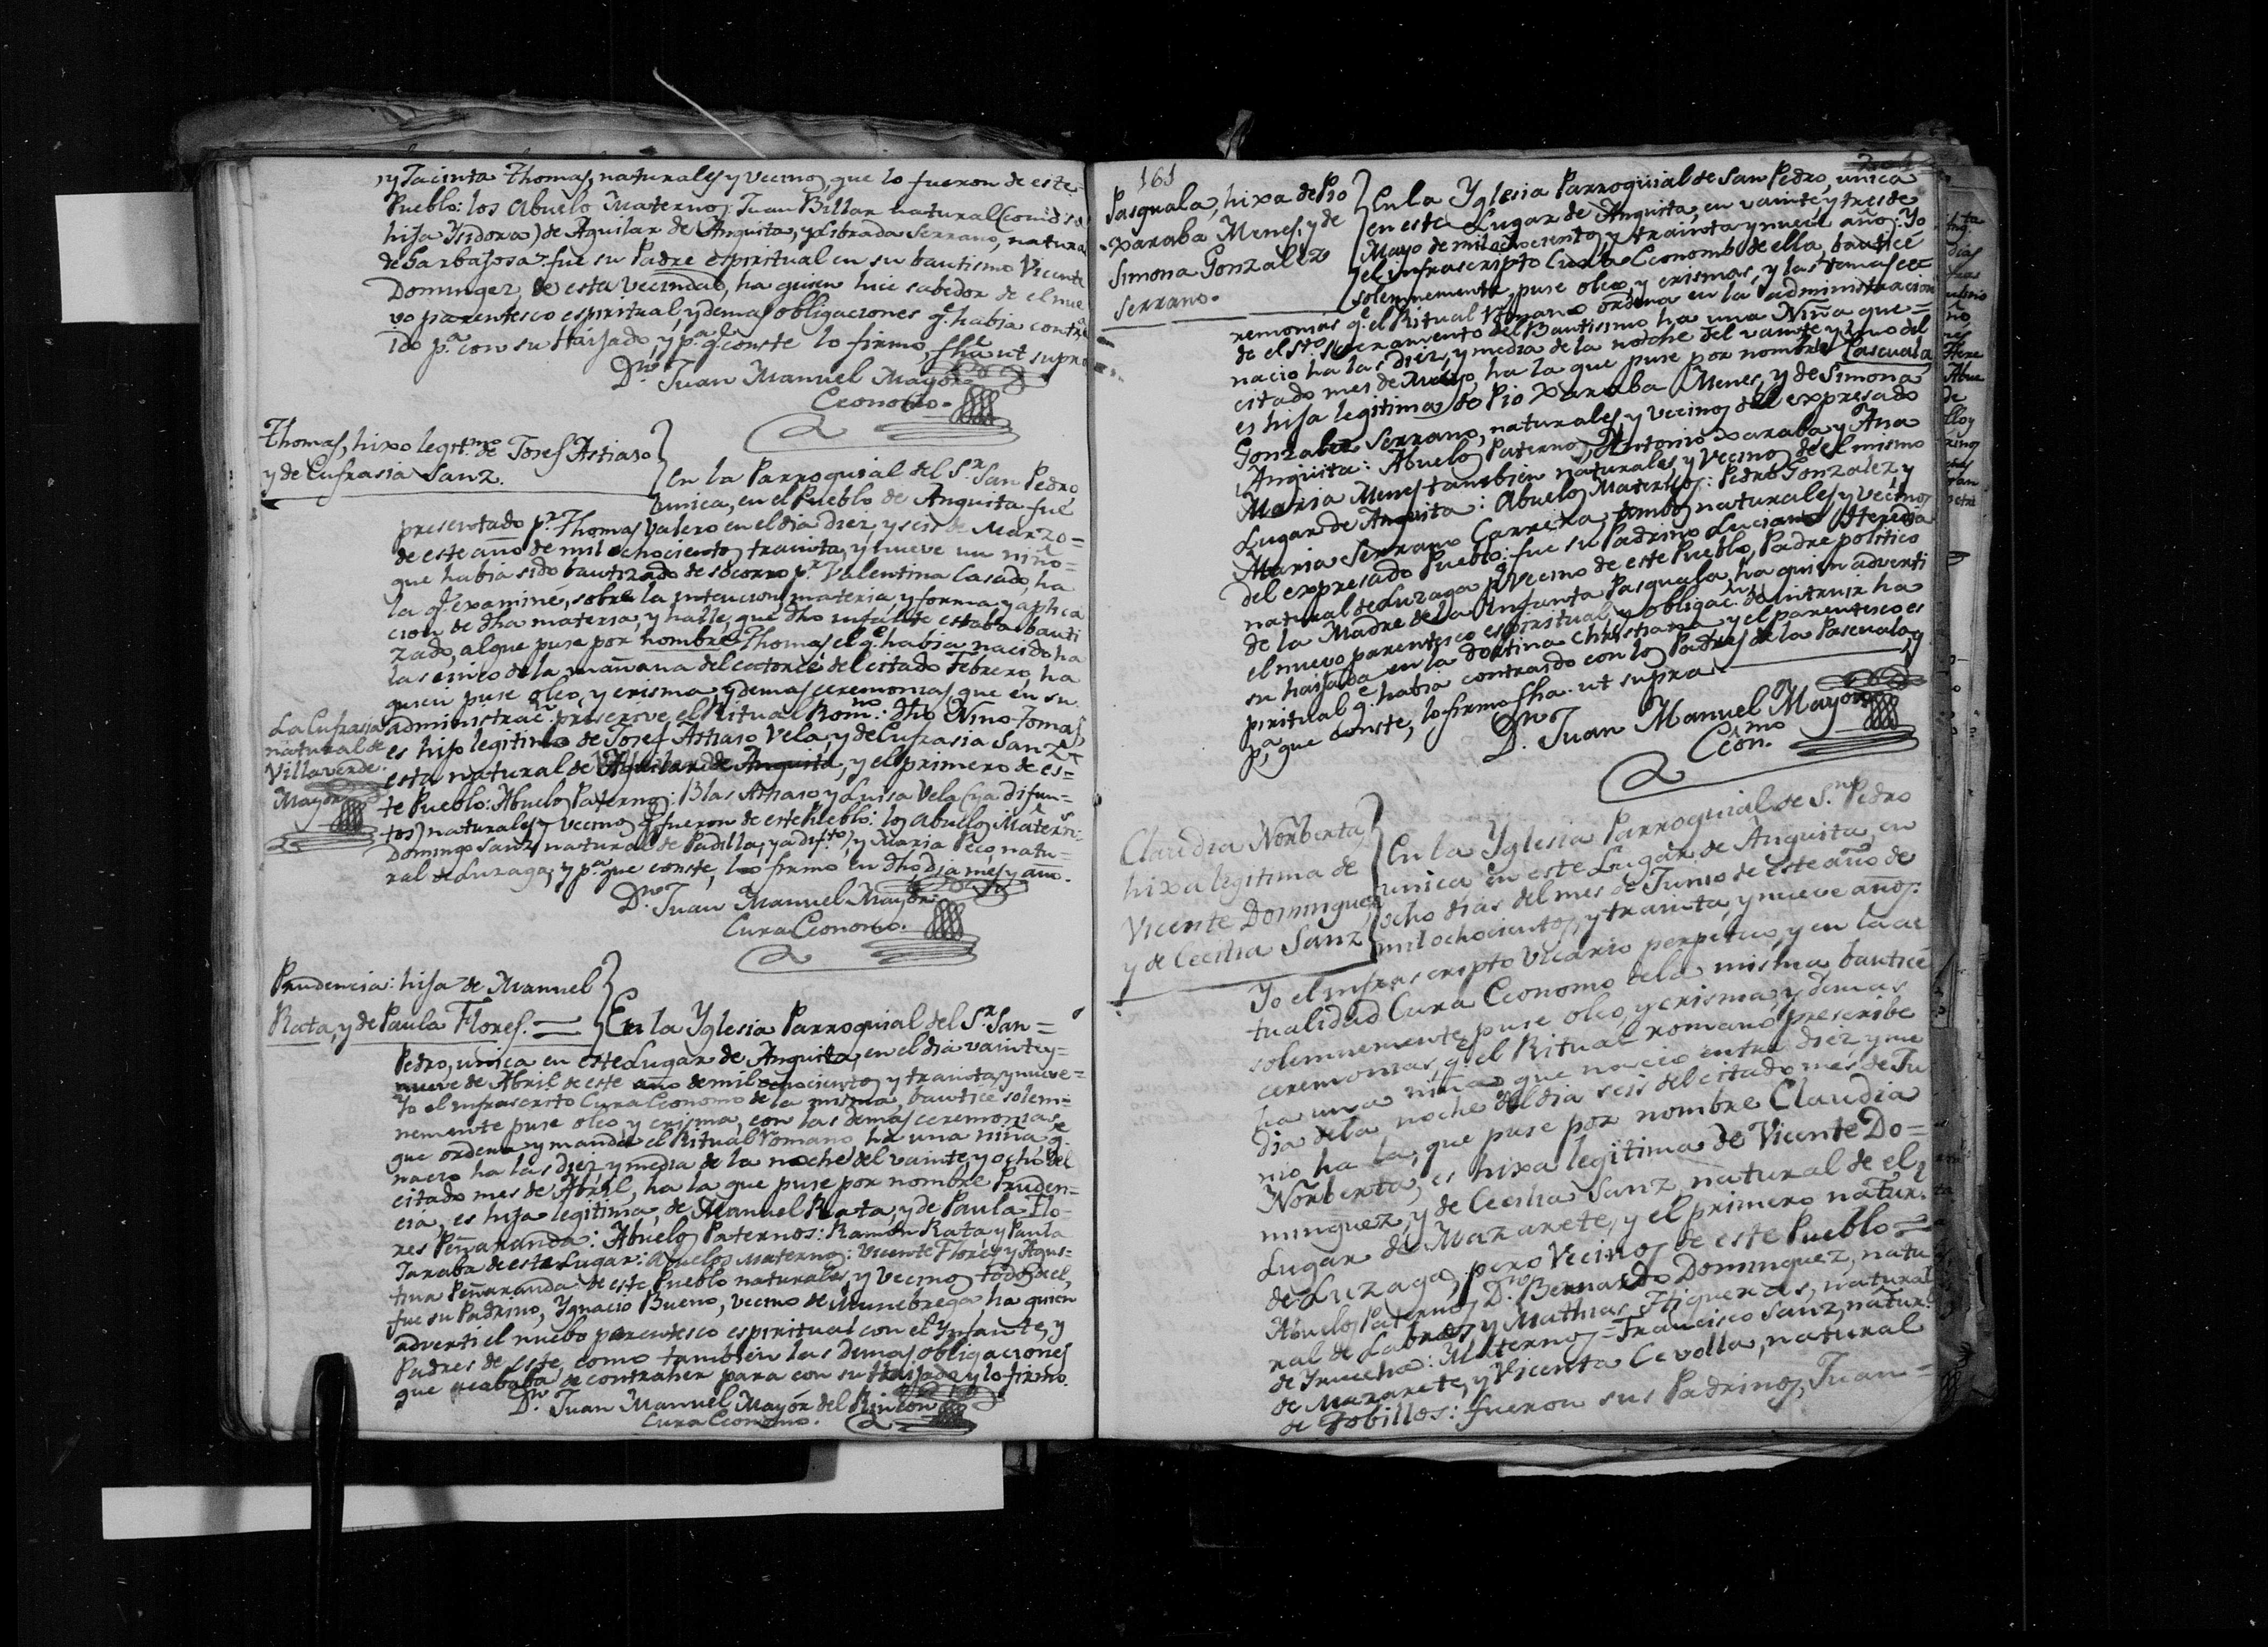 y Jacinta Thomas, naturales y vecinos, que lo fueron de este
Pueblo: los Abuelos Maternos: Juan Billar natural (como dicha
hija Ysidora) de Aguilar de Anguita, y Librada Serrano, natura
de Sarbajosa. fue su Padre espiritual en su bautismo Vicente
Dominguez, de esta vecindad, ha quien hice sabedor de el nue
vo parentesco espiritual, y demas obligaciones q.e habia contra
ido p.a con su Haijado, y p.a q.e conste lo firmo, fha ut supra
D.n Juan Manuel Mayor
Ceonomo.
Thomas, hixo legit.mo de Josef Astiaso
y de Eufrasia Sanz.
En la Parroquial del S.r San Pedro,
unica, en el Pueblo de Anguita fue
presentado p.r Thomas Valero en el dia diez, y seis de Marzo =
de este año de mil ochocientos trainta, y nueve un niño =
que habia sido bautizado de socorro p.r Valentina Casado, ha
la q.e examine, sobre la intencion, materia, y forma, y aplica
cion de dha materia, y halle, que dho infante estaba bauti
zado, al que puse por nombre Thomas el q.e habia nacido ha
las cinco de la mañana del catorce del citado Febrero, ha
quien puse oleo, y crisma, y demas ceremonias, que en su
administrac.n prescrive el Ritual Rom.no: dho Niño Tomas,
es hijo legitimo de Josef Astiaso Vela, y de Eufrasia Sanz
esta natural de Aguilar de Anguita, y el primero de es=
te Pueblo: Abuelos Paternos: Blas Astiaso y Luisa Vela (ya difun=
tos) naturales y vecinos q.e fueron de este Pueblo: los Abuelos Matern.s:
Domingo Sanz natural de Padilla, ya dif.to, y Maria Peco, natu=
ral de Luzaga; y p.a que conste, lo firmo en dho dia mes, y año.
La Eufrasia
natural de
Villaverde.
Mayor
D.n Juan Manuel Mayor
Cura Ceonomo.
Prudencia: hija de Manuel
Rata, y de Paula Flores. =
En la Yglesia Parroquial del S.r San =
Pedro, unica en este Lugar de Anguita, en el dia vainte y =
nueve de Abril de este año de mil ochocientos y trainta, y nueve =
Yo el infrascrito Cura Ceonomo de la misma, bautice solem=
nemente puse oleo, y crisma, con las demas ceremonias
que ordena y manda el Ritual romano, ha una niña q.e
nacio ha las diez, y media de la noche del vainte, y ocho del
citado mes de Abril, ha la que puse por nombre Pruden=
cia, es hija legitima, de Manuel Rata, y de Paula Flo=
res Peñaranda: Abuelos Paternos: Ramon Rata, y Paula
Jaraba de este Lugar: Abuelos Maternos: Vicente Flores y Agus=
tina Peñaranda de este Pueblo naturales, y vecinos todos de el,
fue su Padrino, Ygnacio Bueno, vecino de Munebrega ha quien
adverti el nuebo parentesco espiritual con el Ynfante, y
Padres de este, como tambien las demas obligaciones
que acababa de contraher para con su Haijado, y lo firmo
D.n Juan Manuel Mayór del Rincon
Cura Ceonomo.
161
Pasquala, hixa de Pio
Xaraba Menes, y de
Simona Gonzalez
Serrano.
En la Yglesia Parroquial de San Pedro, unica
en este Lugar de Anguita, en vainte, y tres de
Mayo de mil ochocientos y trainta y nueve años: Yo
el infrascripto Cura Ceonomo de ella, bautice
solemnemente, puse oleo, y crismas, y las demas ce=
remonias q.e el Ritual Romano ordena en la administracion
de el S.to Sacramento del Bautismo ha una Niña que =
nacio ha las diez, y media de la noche del vainte, y uno del
citado mes de Mayo, ha la que puse por nombre Pascuala,
es hija legitima de Pio Xaraba Menes, y de Simona
Gonzalez Serrano, naturales, y vecinos del expresado
Anguita: Abuelos Paternos, Antonio Xaraba y Ana
Maria Menes tambien naturales, y vecinos de el mismo
Lugar de Anguita: Abuelos Maternos: Pedro Gonzalez y
Maria Serrano Carrera, ambos naturales, y vecinos
del expresado Pueblo: fue su Padrino Luciano Heredia
natural de Luzaga y vecino de este Pueblo, Padre politico
de la Madre de la Ynfanta Pasquala, ha quien adverti
el nuevo parentesco espiritual, y obligac.n de intruir ha
su haijada en la dotrina christiana y el parentesco es
piritual q.e habia contraido con los Padres de la Pascuala, y
p.a que conste, lo firmo fha. ut supra.
D.n Juan Manuel Mayor
Ceon.mo
Claudia Norberta
hixa legitima de
Vicente Dominguez
y de Cecilia Sanz
En la Yglesia Parroquial de S.n Pedro
unica en este Lugar de Anguita, en
ocho dias del mes de Junio de este año de
mil ochocientos, y trainta, y nueve años:
Yo el infrascripto Vicario perpetuo, y en la ac
tualidad Cura Ceonomo de la misma bautice
solemnemente, puse oleo, y crisma, y demas
ceremonias, q.e el Ritual romano prescribe
ha una niña que nacio entre diez, y me
dia de la noche del dia seis del citado mes de Ju
nio ha la, que puse por nombre Claudia
Norberta, es hixa legitima de Vicente Do=
minguez, y de Cecilia Sanz natural de el,
Lugar de Mazarete, y el primero natur.l
de Luzaga, pero Vecinos de este Pueblo =
Abuelos Paternos D.n Bernardo Dominguez, natu
ral de Labros, y Mathias Higueras, natural
de Yruecha: Maternos = Francisco Sanz, natur.l
de Mazarete, y Vicenta Cevolla, natural
de Tobillos: fueron sus Padrinos, Juan =